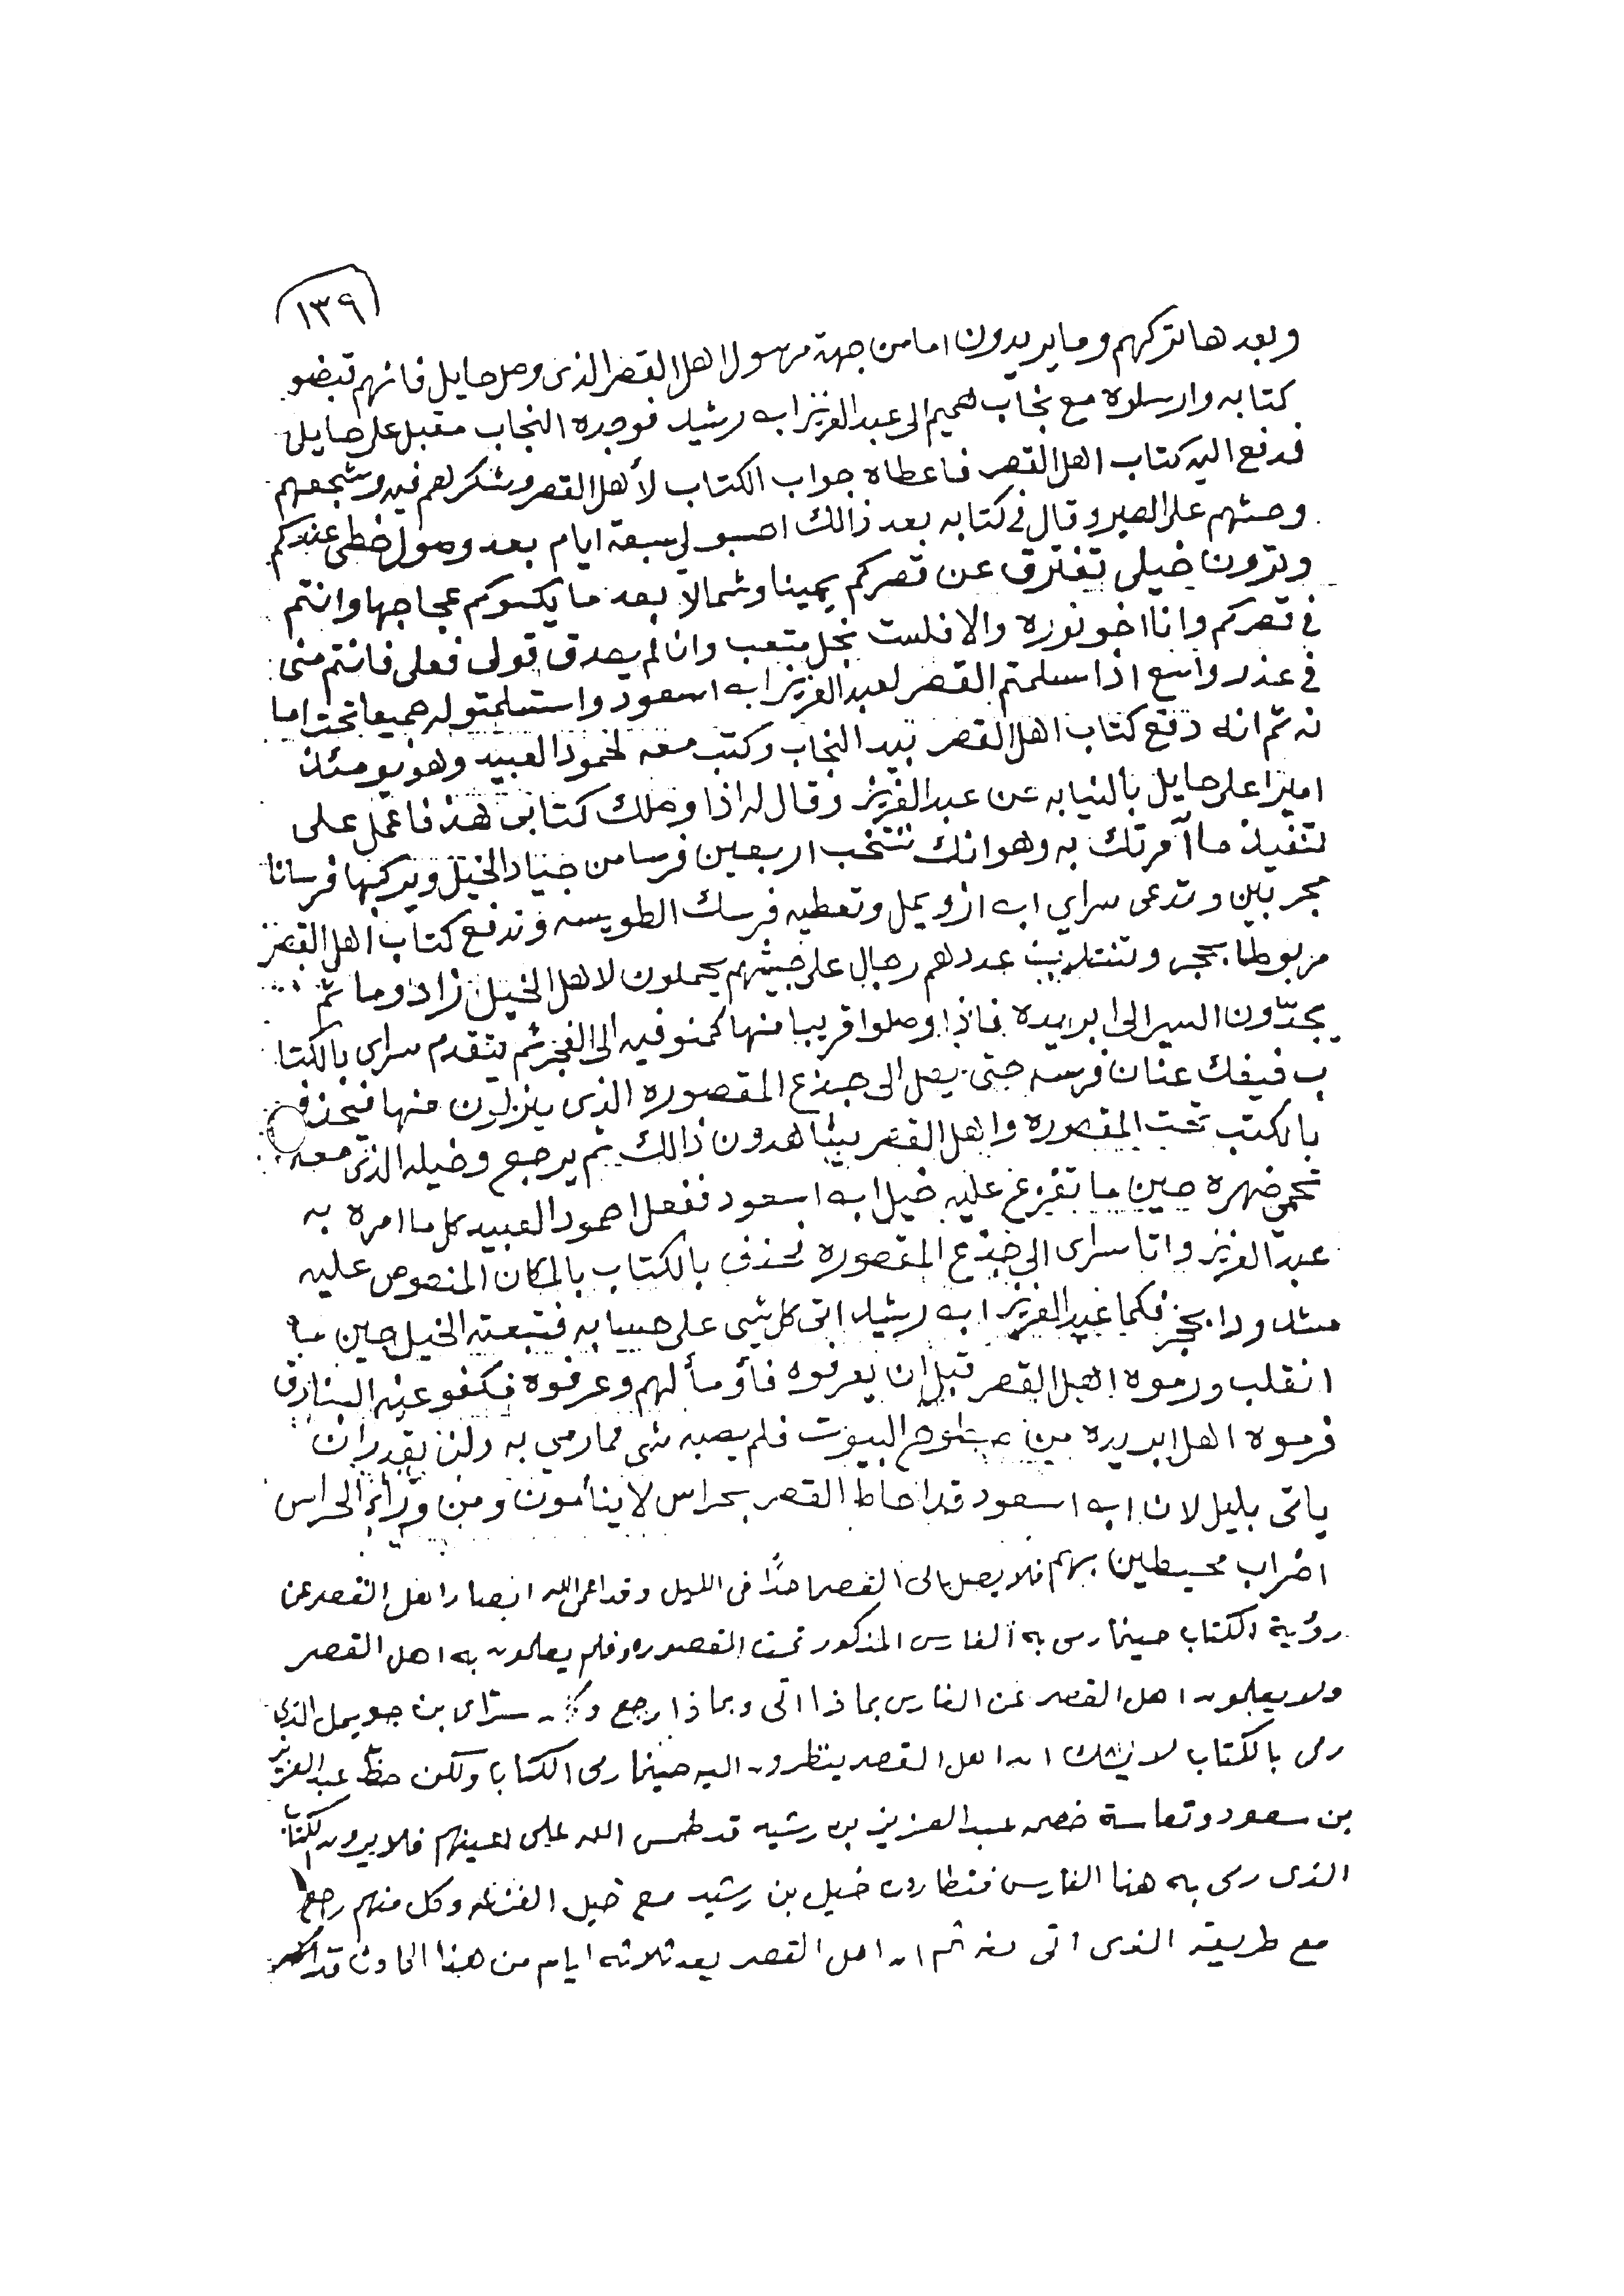 ١٣٩
وبعدها نتركهم وما يريدون اما من جهة مرسول اهل القصر الذي وصل حايل فانهم قبضو
كتابه وارسلوه مع نجاب لهميم الى عبدالعزيز ابن رشيد فوجده النجاب مقبل على حايل
فدفع اليه كتاب اهل القصر فاعطاه جواب الكتاب لأهل القصر وشكرلهم فيه وشجعهم
وحثهم على الصبر وقال في كتابه بعد ذالك احسبو لي سبعة ايام بعد وصول خطي عندكم
وترون خيلي تفترق عن قصركم يمينا وشمالا بعد ما يكسوكم عجاجها وانتم
في قصركم وانا اخو نوره والا فلست نجل متعب وان لم يصدق قولي فعلي فانتم مني
في عذر واسع اذا سلمتم القصر لعبدالعزيز ابن اسعود واستسلمتوله جميعا تحت اما
نه ثم انه دفع كتاب اهل القصر بيد النجاب وكتب معه لحمود العبيد وهو يومئذ
اميرا على حايل بالنيابه عن عبدالعزيز وقال له اذا وصلك كتابي هذ فاعمل على
تنفيذ ما آمرتك به وهو انك تنتخب اربعين فرسا من جياد الخيل ويركبها فرسانا
مجربين وتدعى سراي ابن ازويمل وتعطيه فرسك الطويسه وتدفع كتاب اهل القصر
مربوطا بحجر وتنتدب عددهم رجال على جيشهم يحملون لاهل الخيل زاد وما ثم
يجدّون السير الى ابريده فاذا وصلوا قريبا منها كمنو فيه الى الفجر ثم يتقدم سراي بالكتا
ب فيفك عنان فرسه حتى يصل الى جذع المقصوره الذي ينزلون منها فيحذف
بالكتب تحت المقصوره واهل القصر يشاهدون ذالك ثم يرجع وخيله الذي معه
تحمي ضهره حين ما تفزع عليه خيل ابن اسعود ففعل احمود العبيد كل ما امره به
عبدالعزيز واتا سراي الى جذع المقصوره فحذف بالكتاب بالمكان المنصوص عليه
مشدودا بحجر فكما عبدالعزيز ابن رشيد اتى كل شي على حسابه فتبعته الخيل حين ما
انقلب ورموه اهل القصر قبل ان يعرفوه فأومأ لهم وعرفوه فكفو عنه البنادق
فرموه اهل ابريده من سطوح البيوت فلم يصبه شي مما رمي به ولن يقدر ان
ياتي بليل لان ابن اسعود قد احاط القصر بحراس لا ينأمون ومن وراء الحراس
اضراب محيطين بهم فلا يصل الى القصر احدًا في الليل وقد اعمى الله ابصار اهل القصر عن
رؤية الكتاب حينما رمى به الفارس المذكور تحت المقصوره فلم يعلمون به اهل القصر
ولا يعلمون اهل القصر عن الفارس بماذا اتى وبماذا رجع سراي بن جويمل الذي
رمى بالكتاب لا يشك ان اهل القصر ينظرون اليه حينما رمى الكتابا ولكن حظ عبدالعزيز
بن سعود وتعاسة خصمه عبدالعزيز بن رشيد قد طمس الله على اعينهم فلا يرون الكتاب
الذي رمى به هذا الفارس فتطاردت خيل بن رشيد مع خيل وكل منهم رجع
مع طريقه الذي اتى منه ثم ان اهل القصر بعد ثلاثه ايام من هذا الحادث قد